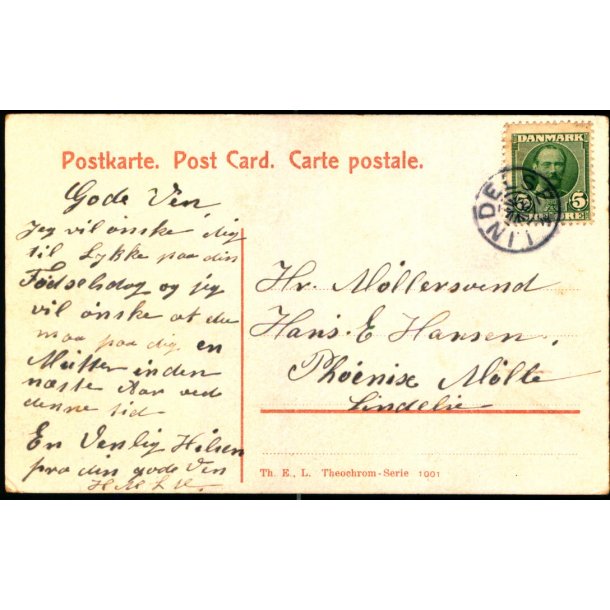 Postkarte. Post Card. Carte postale.
DANMARK
5
ØRE
LINDE
Gode Ven
Jeg vil ønske dig
til Lykke paa din
Fødselsdag og jeg
vil ønske at du
maa faa dig en
Mutter inden
næste Aar ved
denne tid
En Venlig Hilsen
fra din gode Ven
Hr. Møllersvend
Hans E Hansen.
Phøenix Mølle
Lindelse
Th. E., L. Theochrom-Serie 1901